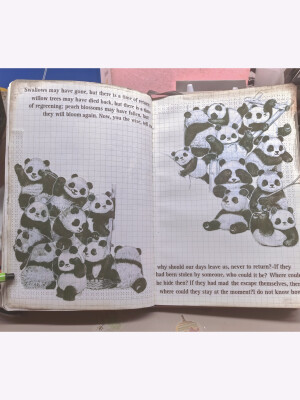 Swallows may have gone, but there is a time of return;
willow trees may have died back, but there is a time
of regreening; peach blossoms may have fallen, but
they will bloom again. Now, you the wise, tell me,
why should our days leave us, never to return?-If they
had been stolen by someone, who could it be? Where could
he hide then? If they had mad the escape themselves, then
where could they stay at the moment?I do not know how